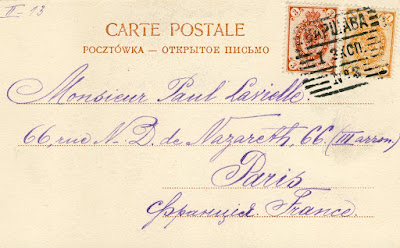 II - 13
CARTE POSTALE
POCZTÓWKA — ОТКРЫТОЕ ПИСЬМО
ВАРШАВА
1 ЭКСП.
№ 8
Monsieur Paul Lavielle.
66, rue N-D. de Nazareth, 66. (III arron)
Paris
Франція. France.